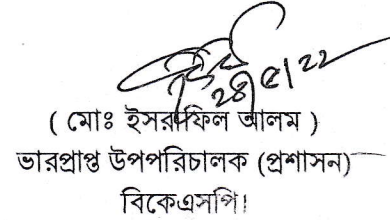 ২৪/৫/২২
( মোঃ ইসরাফিল আলম )
ভারপ্রাপ্ত উপপরিচালক (প্রশাসন)
বিকেএসপি।